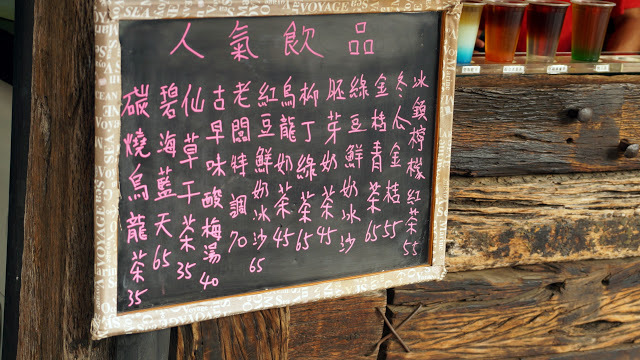 人氣飲品
冰鎮檸檬紅茶55
冬瓜金桔55
金桔青茶65
綠豆鮮奶冰沙
胚芽奶茶45
柳丁綠茶65
烏龍奶茶45
紅豆鮮奶冰沙65
老闆特調70
古早味酸梅湯40
仙草干茶35
碧海藍天65
碳燒烏龍茶35
VOYAGE